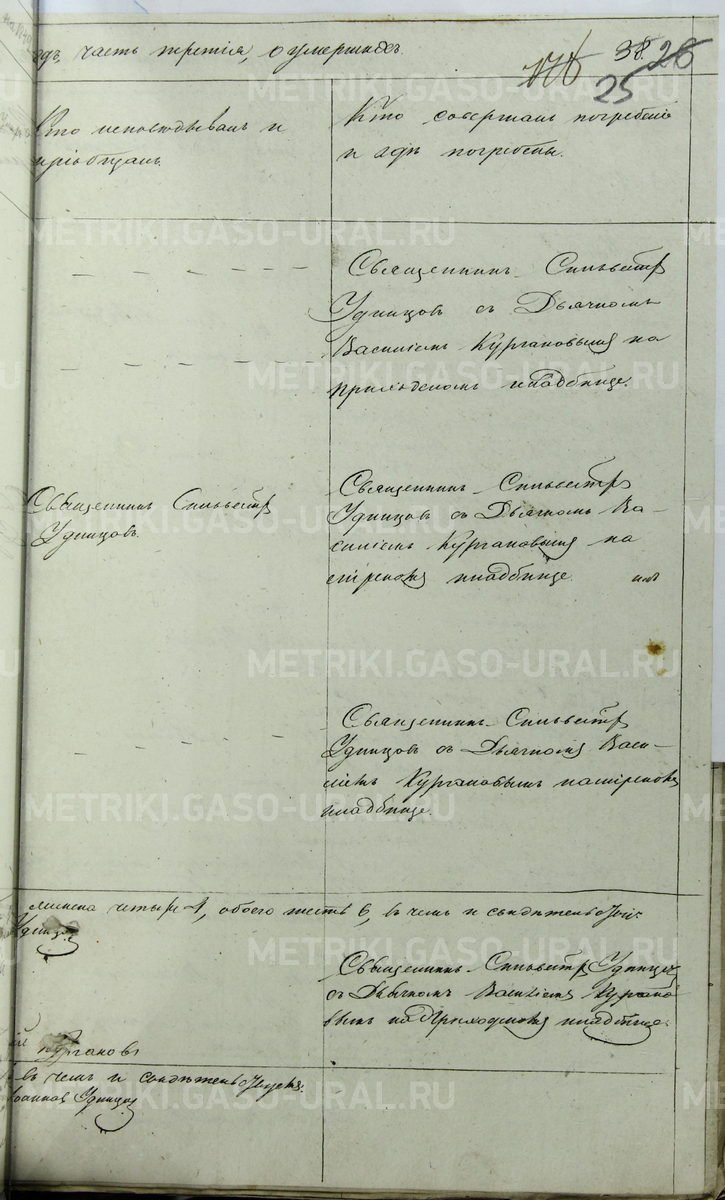 одъ, часть третія, о умершихъ.
38. 26
25
Кто исповѣдывалъ и
пріобщалъ.
Кто совершалъ погребеніе
и гдѣ погребены.
Священникъ Сильвестръ
Удинцовъ съ Дьячкомъ
Василіемъ Кургановымъ на
приходскомъ кладбище.
Священникъ Сильвестръ
Удинцовъ.
Священникъ Сильвестръ
Удинцовъ съ Дьячкомъ Ва-
силіемъ Кургановымъ на
кладбище.
Священникъ Сильвестръ
Удинцовъ съ Дьячкомъ Васи-
ліемъ Кургановымъ
кладбище.
четыре 4, обоего шесть 6, въ чемъ и свидѣтельствуемъ
Удинцовъ
Священникъ Сильвестръ Удинцовъ
съ Дьячкомъ Василіемъ Кургано-
вымъ на Приходскомъ кладбище.
Кургановъ
въ чемъ и свидѣтельствуемъ.
Удинцовъ
METRIKI.GASO-URAL.RU